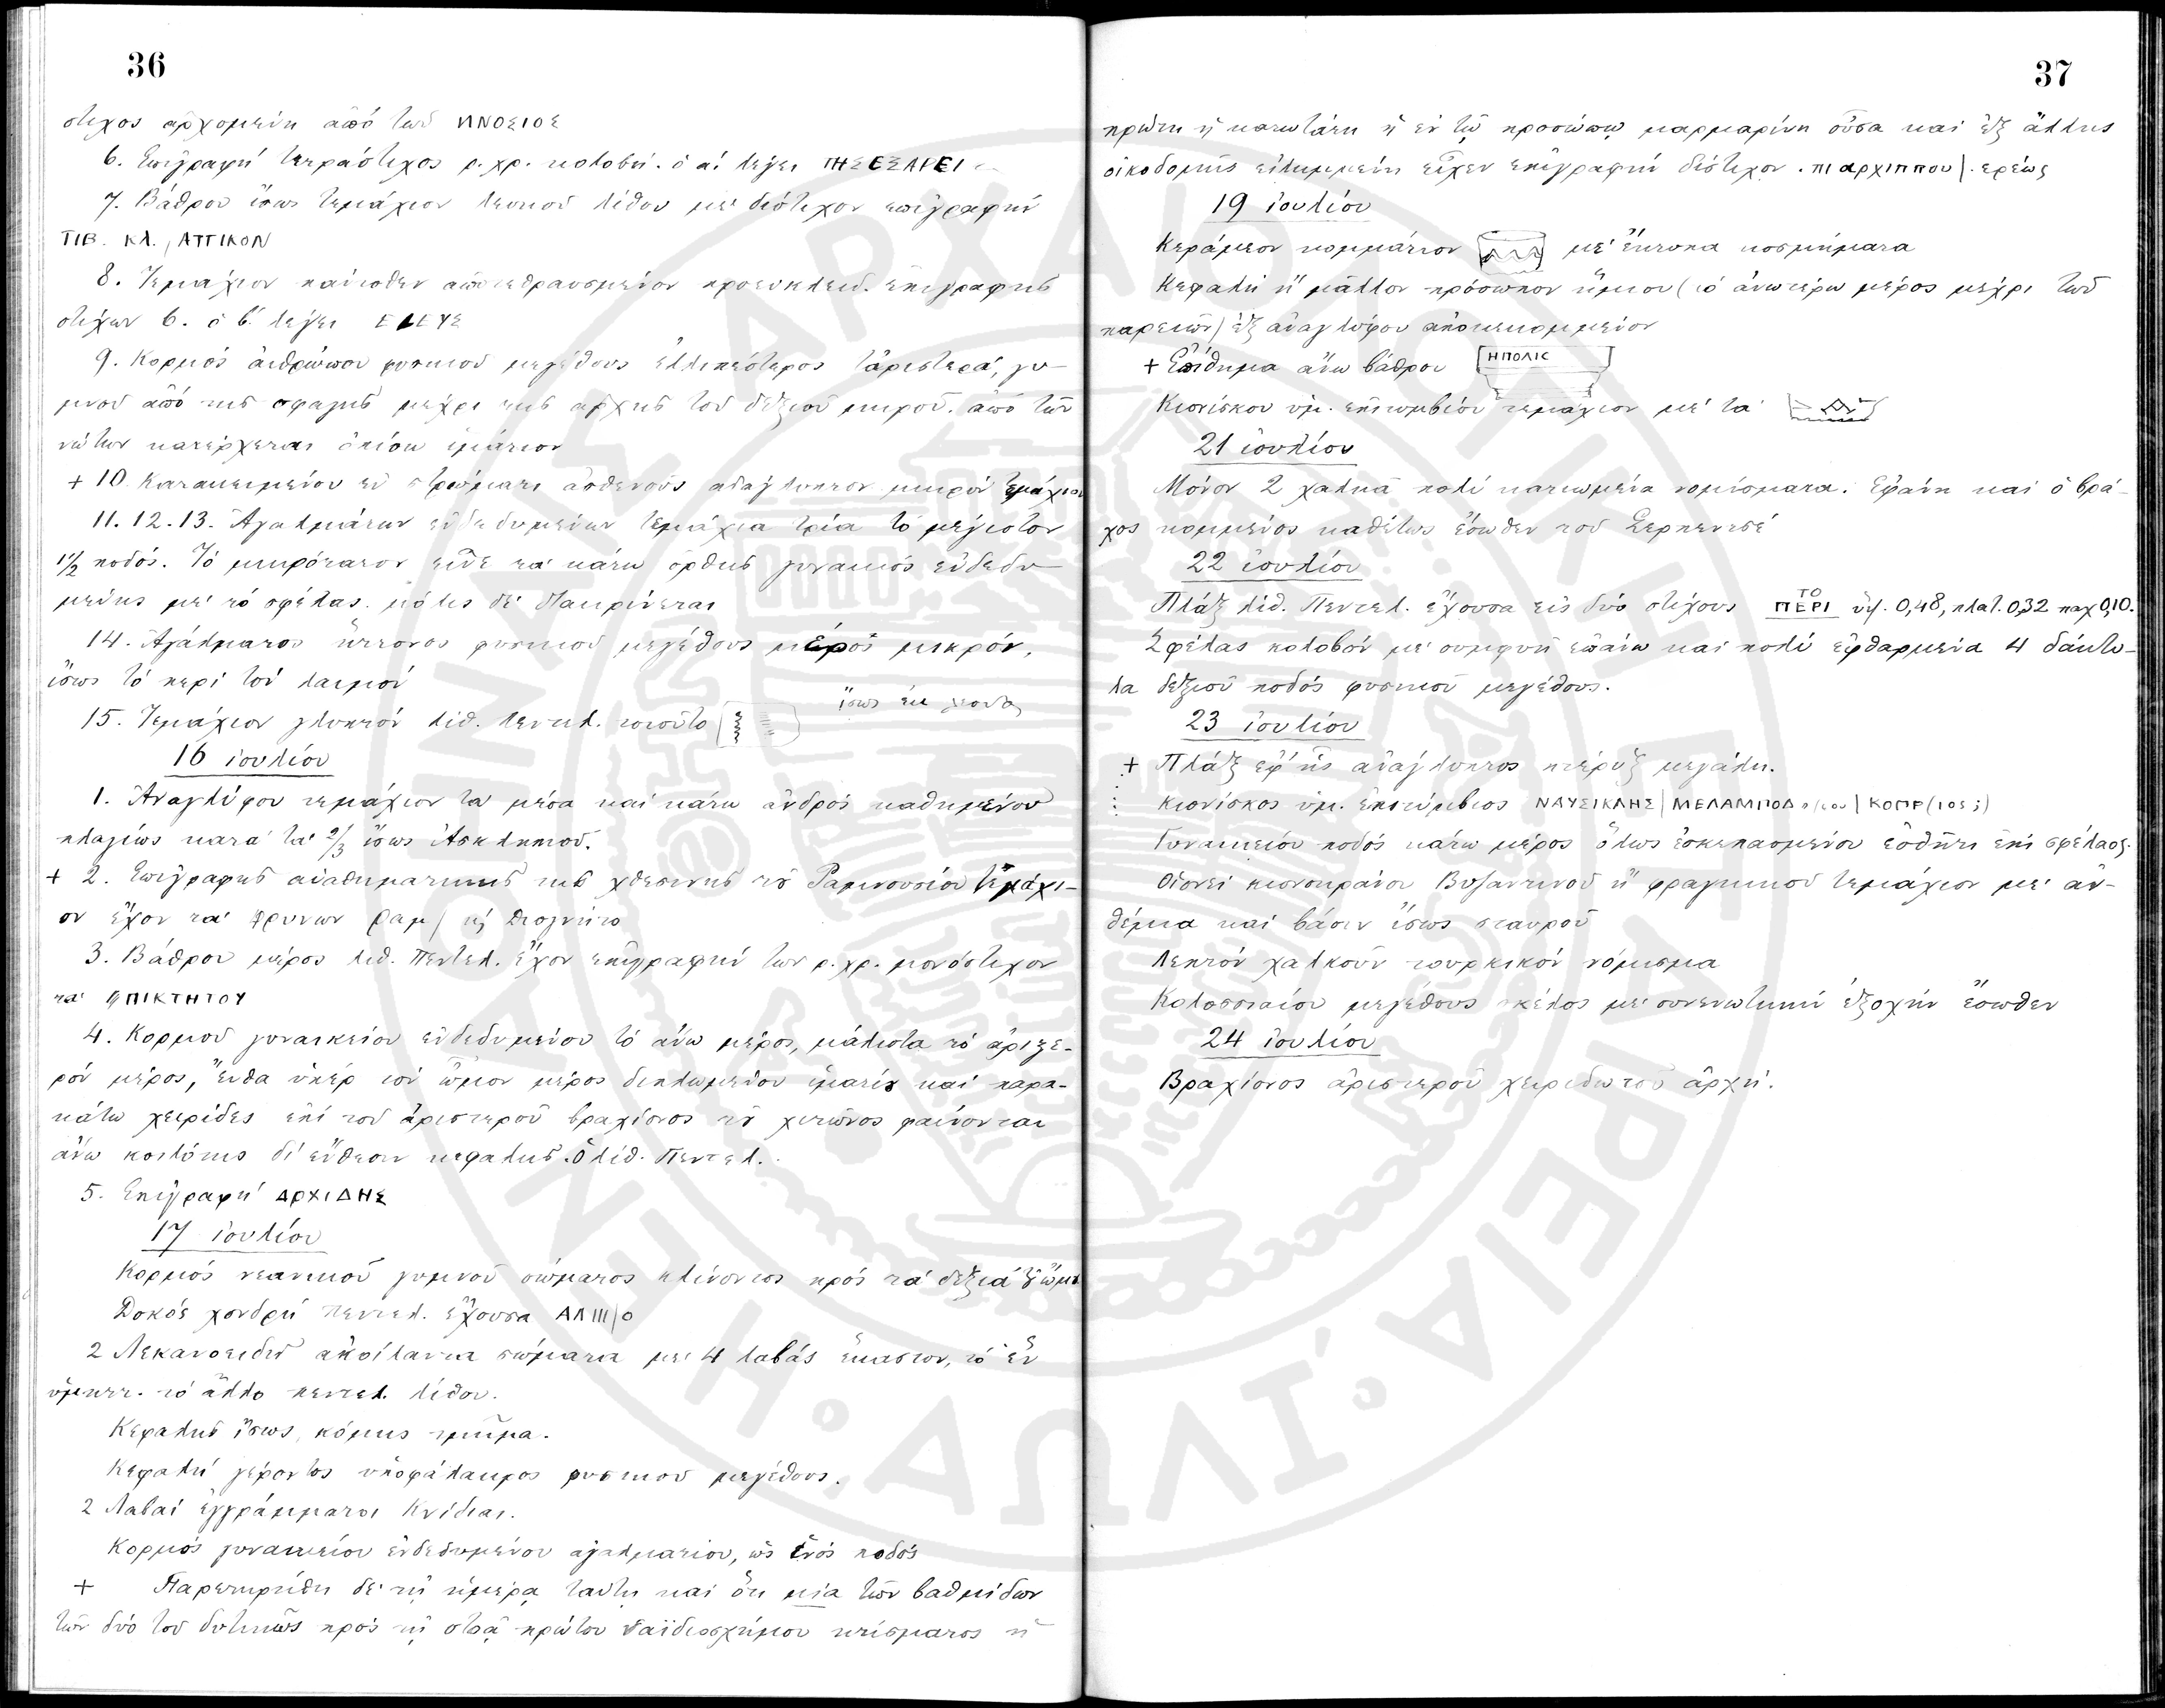 36
στιχος αρχομένη από του ΙΝΟΣΙΟΣ
6. Επιγραφή τετράστιχος ρ. χρ. κολοβή. ὁ α΄ λέγει ΠΗΣΕΞΑΡΕΙ
7. Βάθρου ἴσως τεμάχιον λευκοῦ λίθου με δίστιχον ἐπιγραφήν
ΤΙΒ. ΚΛ., ΑΤΤΙΚΟΝ
8. Τεμάχιον πάντοθεν ἀποτεθραυσμένον ἐπιγραφῆς
στίχων 6. ὁ β΄. λέγει ΕΛΕΥΣ
9. Κορμός ἀνθρώπου φυσικοῦ μεγέθους ἐλλιπέστερος τἀριστερά, γυ-
μνοῦ ἀπό τῆς σφαγῆς μέχρι τῆς ἀρχῆς τοῦ δεξιοῦ μηροῦ. ἀπό τῶν
νώτων κατέρχεται ὀπίσω ἱμάτιον
+ 10. Κατακειμένου ἐν στρώματι ἀσθενοῦς ἀνάγλυπτον μικρόν τεμάχιον
11. 12. 13. Ἀγαλμάτων ἐνδεδυμένων τεμάχια τρία τό μέγιστον
1 1/2 ποδός. Τό μικρότατον εἶνε τα κάτω ὀρθῆς γυναικός ἐνδεδυ-
μένης με τό σφέλας. μόλις δε διακρίνεται
14. Ἀγάλματος ἥττονος φυσικοῦ μεγέθους μέρος μικρόν,
ἴσως τό περί τόν λαιμόν
15. Τεμάχιον γλυπτόν λίθ. πεντελ. τοιοῦτο ἴσως ἐκ λέοντος
16 Ἰουλίου
1. Ἀναγλύφου τεμάχιον τα μέσα καί κάτω ἀνδρός καθημένου
πλαγίως κατά τα 2/3 ἴσως Ἀσκληπιοῦ.
+ 2. Ἐπιγραφῆς ἀναθηματικῆς τῆς χθεσινῆς τοῦ Ραμνουσίου τεμάχι-
ον ἔχον τα Φρυνων Ραμ/ κή Διογνήτο
3. Βάθρου μέρος λίθ. Πεντελ. ἔχον ἐπιγραφήν των ρ. χρ. μονόστιχον
τα ΕΠΙΚΤΗΤΟΥ
4. Κορμοῦ γυναικείου ἐνδεδυμένου τό ἄνω μέρος, μάλιστα τό ἀριστε-
ρόν μέρος, ἔνθα ὑπέρ τόν ὦμον μέρος διπλωμένου ἱματίου καί παρα-
κάτω χειρίδες ἐπί τοῦ ἀριστεροῦ βραχίονος τοῦ χιτῶνος φαίνονται
ἄνω κοιλότης δι' ἔνθεσιν κεφαλῆς. ὁ λίθ. Πεντελ.
5. Ἐπιγραφή ΑΡΧΙΔΗΣ
17 Ἰουλίου
Κορμός νεανικοῦ γυμνοῦ σώματος κλίνοντος πρός τά δεξιά
Δοκός χονδρή πεντελ. ἔχουσα ΑΛΙΙΙ/Ο
2 Λεκανοειδῆ ἀποίλαντα σώματα με 4 λαβάς ἕκαστον, τό ἕν
ὑμηττ. τό ἄλλο πεντελ. λίθου.
Κεφαλῆς ἴσως, κόμης τμῆμα.
Κεφαλή γέροντος ὑποφάλακρος φυσικοῦ μεγέθους.
2 Λαβαί ἐγγράμματοι Κνίδιαι.
Κορμός γυναικείου ἐνδεδυμένου ἀγαλματίου, ὡς ἑνός ποδός
+ Παρετηρήθη δε τῇ ἡμέρᾳ ταύτῃ καί ὅτι μία τῶν βαθμίδων
τῶν δύο τοῦ δυτικῶς πρός τῇ στοᾷ πρώτου παϊδιοσχήμου κτίσματος ἡ
37
πρώτη ἡ κατωτάτη ἡ ἐν τῷ προσώπῳ μαρμαρίνη οὖσα καί ἐξ ἄλλης
οἰκοδομῆς εἰλημμένη εἶχεν ἐπιγραφήν δίστιχον. ΠΙ αρχιππου/. ερέως
19 Ἰουλίου
Κεράμεον κομμάτιον με ἔντυπα κοσμήματα
Κεφαλή ἤ μᾶλλον πρόσωπον ἥμισυ (τό ἀνωτέρω μέρος μέχρι τῶν
παρειῶν) ἐξ ἀναγλύφου ἀποκεκομμένον
+ Ἐπίθημα ἄνω βάθρου ΗΠΟΛΙΣ
Κιονίσκου ὑμ. ἐπιτυμβίου τεμάχιον με τα
21 Ἰουλίου
Μόνον 2 χαλκᾶ πολύ κατιωμένα νομίσματα. Ἐφάνη καί ὁ βρά-
χος κομμένος καθέτως ἔσωθεν τοῦ Σερπεντζέ
22 Ἰουλίου
Πλάξ λίθ. Πεντελ. ἔχουσα εἰς δύο στίχους ΤΟ ΠΕΡΙ ὑψ. 0,48, πλατ. 0,32 παχ 0,10.
Σφέλας κολοβόν με συμφυῆ ἐπάνω καί πολύ ἐφθαρμένα 4 δάκτυ-
λα δεξιοῦ ποδός φυσικοῦ μεγέθους.
23 Ἰουλίου
+ Πλάξ ἐφ' ἧς ἀνάγλυπτος πτέρυξ μεγάλη.
Κιονίσκος ὑμ. ἐπιτύμβιος ΝΑΥΣΙΚΛΗΣ/ΜΕΛΑΜΠΟΔο/του/ΚΟΠΡ(ΙΟΣ;)
Γυναικείου ποδός κάτω μέρος ὅλως ἐσκεπασμένου ἐσθῆτι ἐπί σφέλαος.
Οἱονεί κιονοκράνου Βυζαντινοῦ ἤ φραγκικοῦ τεμάχιον με ἀν-
θέμια καί βάσιν ἴσως σταυροῦ
Λεπτόν χαλκοῦν τουρκικόν νόμισμα
Κολοσσιαίου μεγέθους σκέλος με συνενωτικήν ἐξοχήν ἔσωθεν
24 Ἰουλίου
Βραχίονος ἀριστεροῦ χειριδωτοῦ ἀρχή.